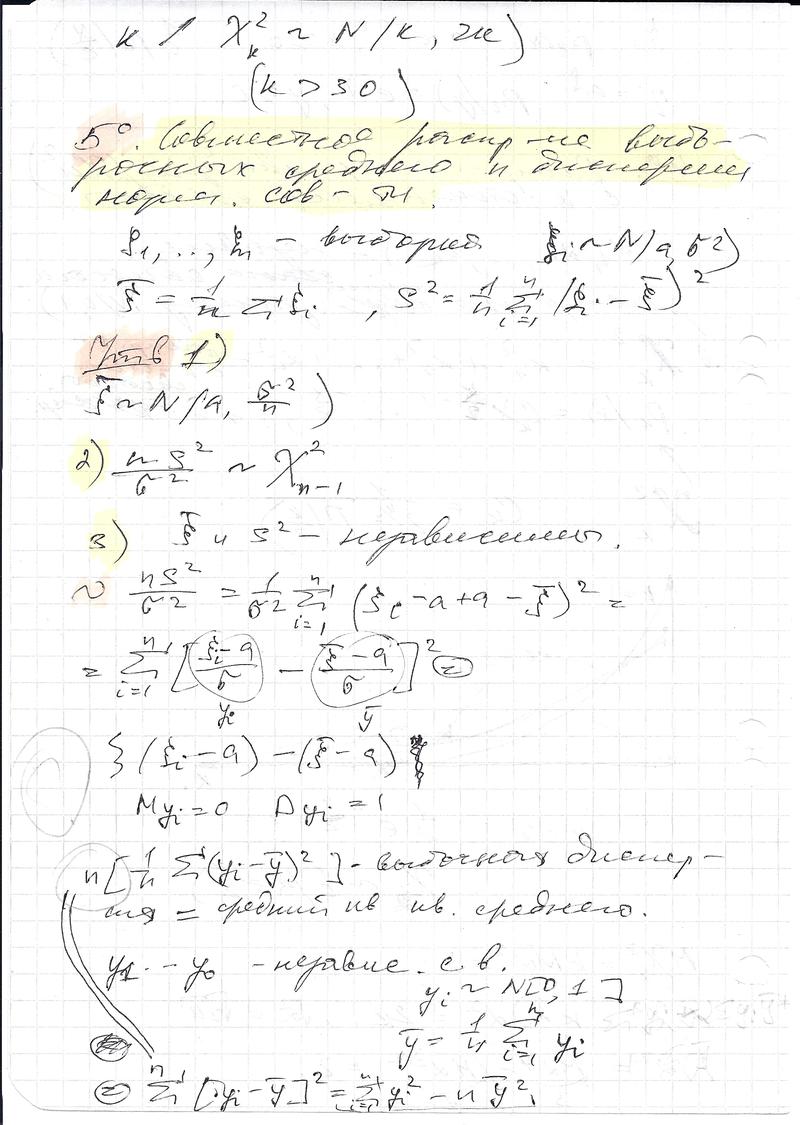 k ↗ χ²_k ~ N(k, 2k)
(k > 30)
5°. Совместное распр-ие выбо-
рочных среднего и дисперсии
норм. сов-ти.
ξ₁, .., ξₙ – выборка ξᵢ ~ N(a, σ²)
ξ̄ = 1/n ∑ ξᵢ , S² = 1/n ∑ᵢ₌₁ⁿ (ξᵢ – ξ̄)²
Утв 1)
ξ̄ ~ N(a, σ²/n)
2) nS²/σ² ~ χ²ₙ₋₁
3) ξ̄ и S² – независимы.
~ nS²/σ² = 1/σ² ∑ᵢ₌₁ⁿ (ξᵢ – a + a – ξ̄)² =
= ∑ᵢ₌₁ⁿ [(ξᵢ – a)/σ – (ξ̄ – a)/σ]² (=)
yᵢ ȳ
{ (ξᵢ – a) – (ξ̄ – a)
Myᵢ = 0 Dyᵢ = 1
n[1/n ∑(yᵢ – ȳ)²] – выбочная диспер-
сия = средний кв кв. среднего.
y₁ .. y₀ – независ. с в.
yᵢ ~ N[0, 1]
ȳ = 1/n ∑ᵢ₌₁ⁿ yᵢ
(=) ∑ⁿ [yᵢ – ȳ]² = ∑ᵢ₌₁ⁿ yᵢ² – n ȳ²